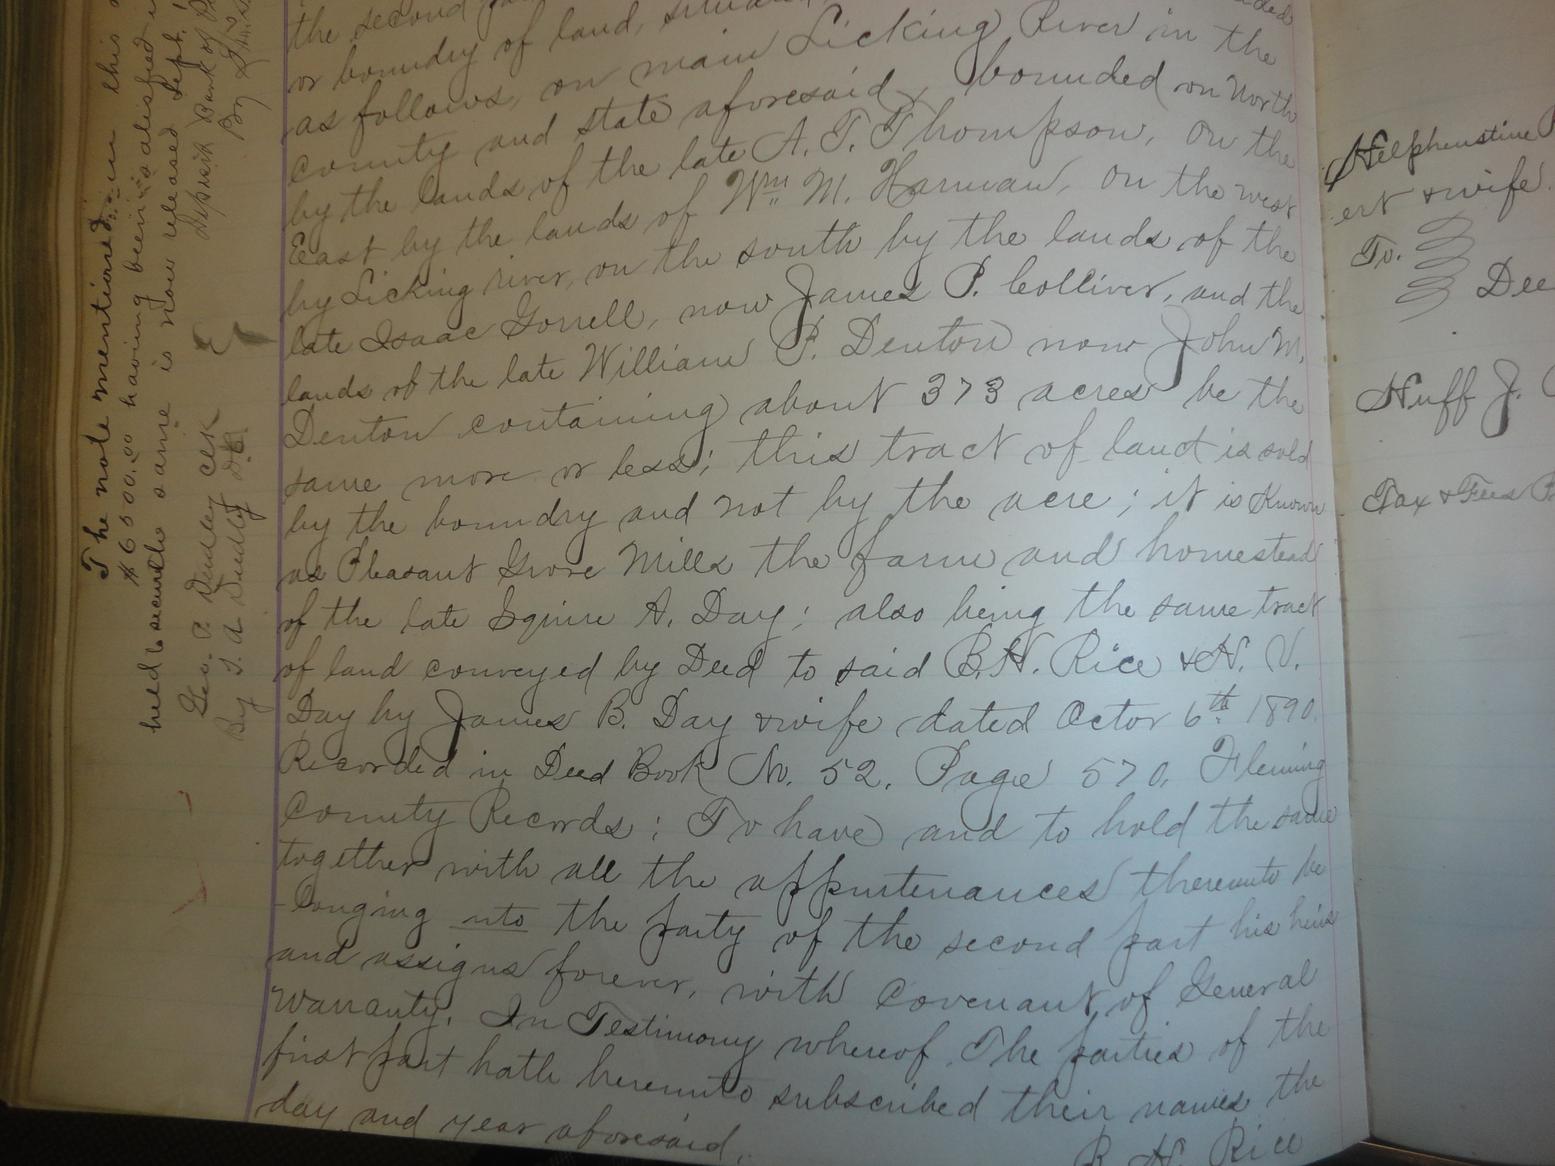 the second
or boundry of land,
as follows, on main Licking River in the
county and state aforesaid, bounded on North
by the lands of the late A. T. Thompson, on the
East by the lands of Wm M. Harman, on the west
by Licking river, on the south by the lands of the
late Isaac Gorrell, now James P. Colliver, and the
lands of the late William P. Denton now John M.
Denton containing about 373 acres be the
same more or less; this tract of land is sold
by the boundry and not by the acre; it is Known
as Pleasant Grove Mills the farm and homestead
of the late Squire A. Day; also being the same tract
of land conveyed by Deed to said B. H. Rice & H. V.
Day by James B. Day & wife dated Octor 6th 1890.
Recorded in Deed Book No. 52. Page 570. Fleming
County Records; To have and to hold the same
together with all the appurtenances thereunto be
-longing unto the party of the second part his heirs
and assigns forever, with Covenant of General
Warranty. In Testimony whereof. The parties of the
first part hath hereunto subscribed their names the
day and year aforesaid.
B. H. Rice
The note mentioned in this
$6500.00 having been satisfied
held to secure same is now released Sept.
Deposit Bank of
By
Geo. P. Dudley Clk
By T. A. Dudley D.C.
Helphenstine
ert & wife
To.
Dee
Huff J.
Tax & Fees